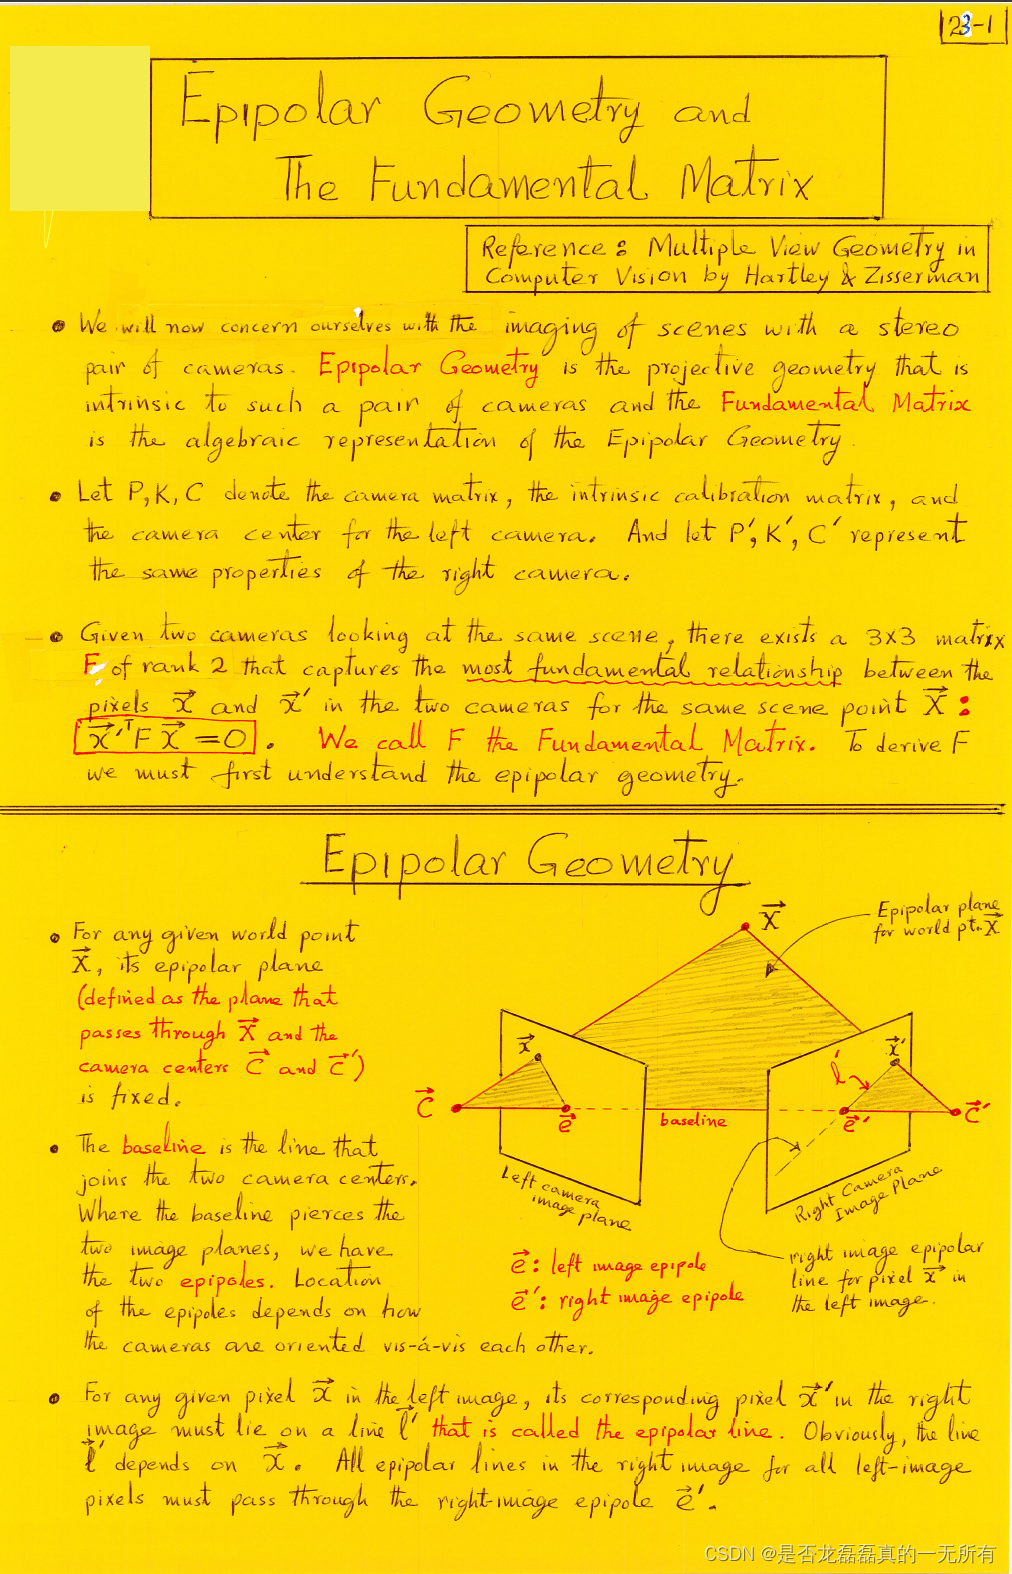 23-1
Epipolar Geometry and
The Fundamental Matrix
Reference: Multiple View Geometry in
Computer Vision by Hartley & Zisserman
• We will now concern ourselves with the imaging of scenes with a stereo
pair of cameras. Epipolar Geometry is the projective geometry that is
intrinsic to such a pair of cameras and the Fundamental Matrix
is the algebraic representation of the Epipolar Geometry.
• Let P, K, C denote the camera matrix, the intrinsic calibration matrix, and
the camera center for the left camera. And let P′, K′, C′ represent
the same properties of the right camera.
• Given two cameras looking at the same scene, there exists a 3x3 matrix
F of rank 2 that captures the most fundamental relationship between the
pixels x⃗ and x⃗′ in the two cameras for the same scene point X⃗:
x⃗′ᵀFx⃗ = 0. We call F the Fundamental Matrix. To derive F
we must first understand the epipolar geometry.
Epipolar Geometry
• For any given world point
X⃗, its epipolar plane
(defined as the plane that
passes through X⃗ and the
camera centers C⃗ and C⃗′)
is fixed.
• The baseline is the line that
joins the two camera centers.
Where the baseline pierces the
two image planes, we have
the two epipoles. Location
of the epipoles depends on how
the cameras are oriented vis-á-vis each other.
X⃗
Epipolar plane
for world pt. X⃗
x⃗
x⃗′
l′
C⃗
e⃗
baseline
e⃗′
C⃗′
Left camera
image plane
Right Camera
Image Plane
e⃗: left image epipole
e⃗′: right image epipole
right image epipolar
line for pixel x⃗ in
the left image.
• For any given pixel x⃗ in the left image, its corresponding pixel x⃗′ in the right
image must lie on a line l⃗′ that is called the epipolar line. Obviously, the line
l⃗′ depends on x⃗. All epipolar lines in the right image for all left-image
pixels must pass through the right-image epipole e⃗′.
CSDN @是否龙磊磊真的一无所有